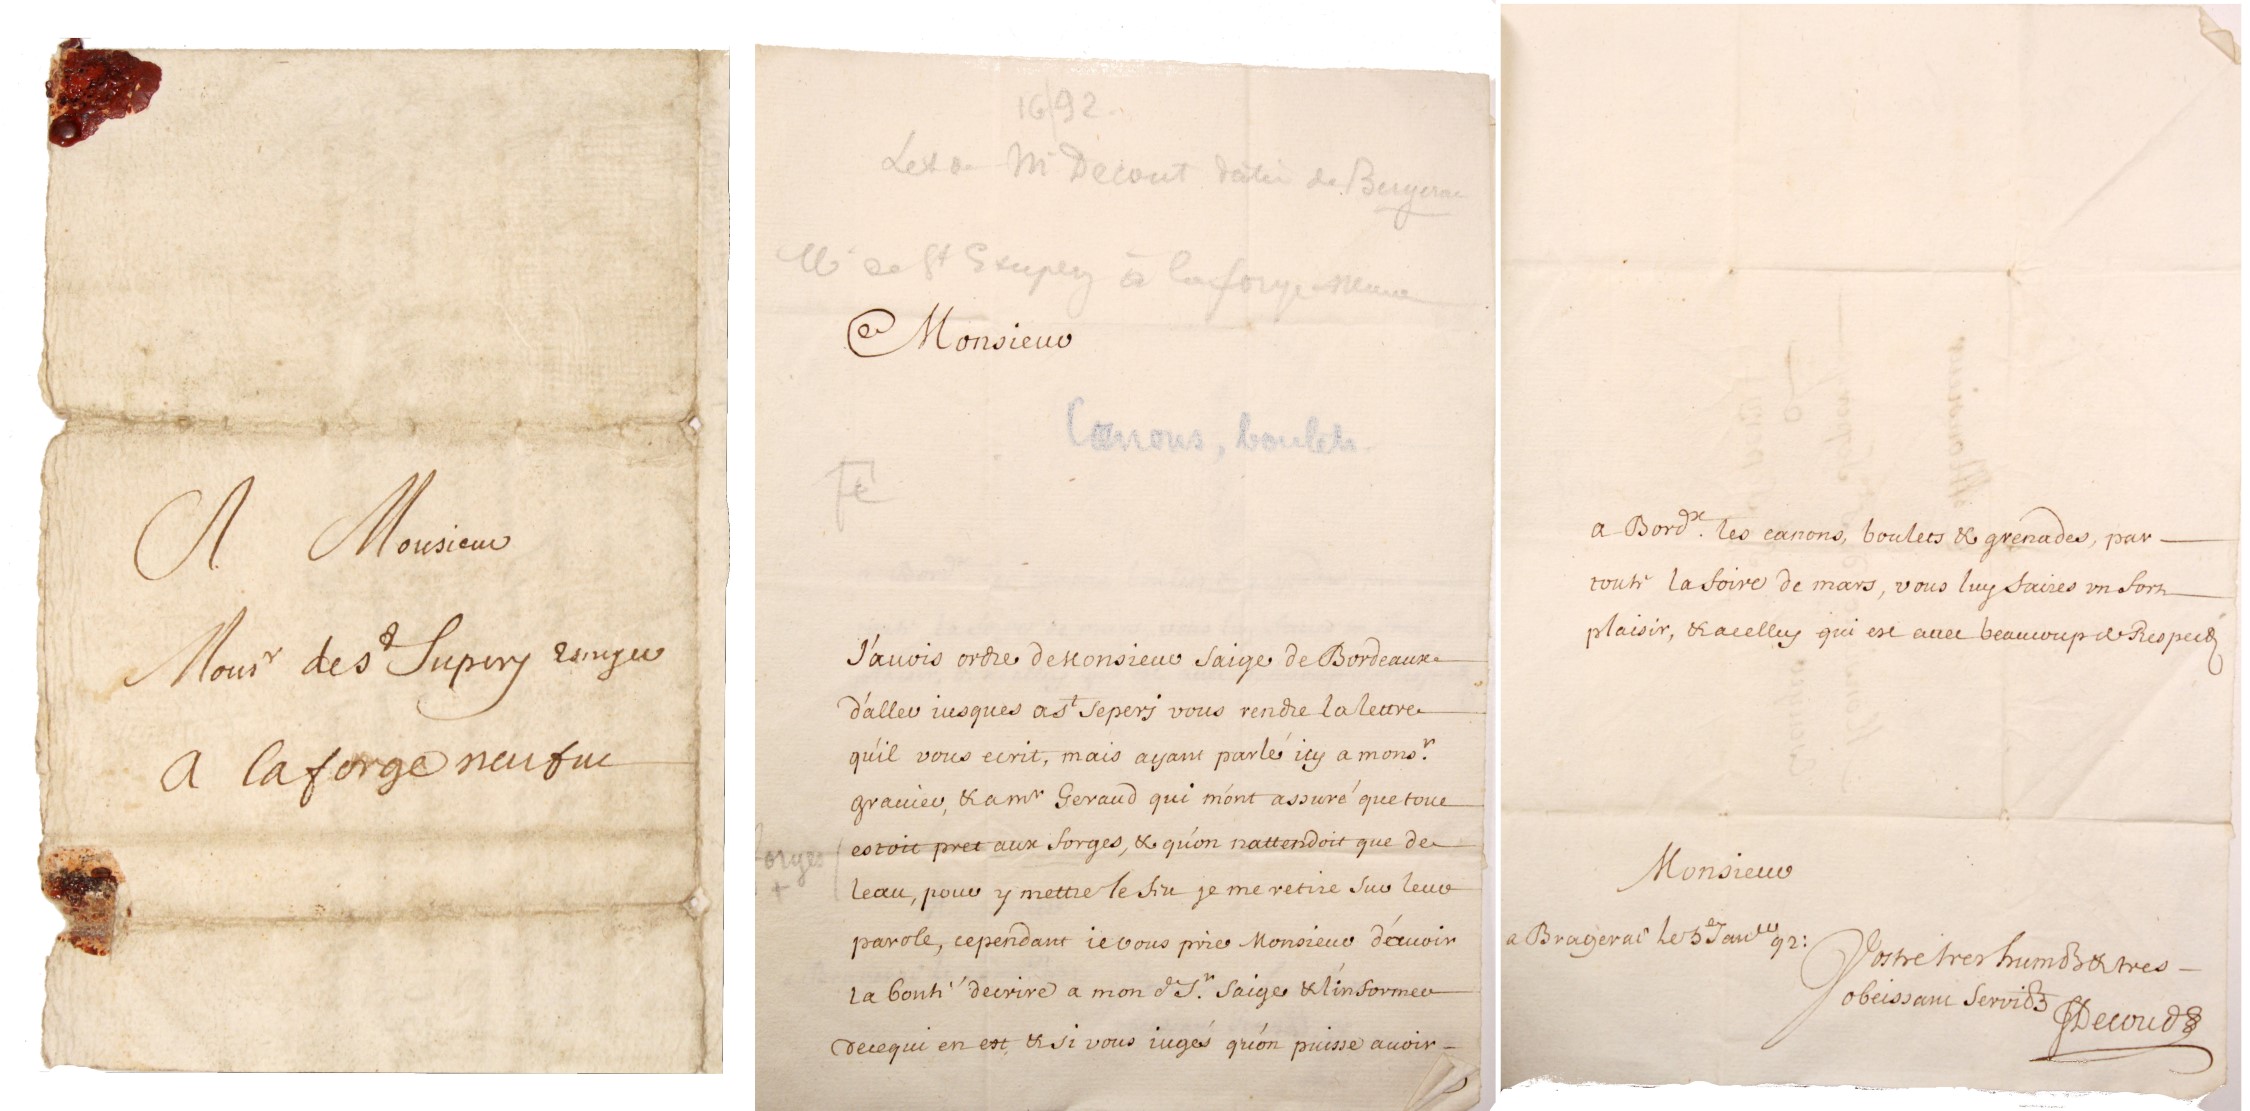 A Monsieur
Monsr de st Supery
A laforge neufue
1692
Let de Mr Decout datée de Bergerac
Mr de St Exupery à laforge neuve
Monsieur
Canons, boulets
J'auois ordre de Monsieur Saige de Bordeaux
d'aller iusques a st Seperj vous rendre la lettre
qu'il vous ecrit, mais ayant parlé icy a monsr.
grauier, & a mr Geraud qui m'ont assuré que tout
estoit pret aux forges, & qu'on n'attendoit que de
leau, pour y mettre le feu je me retire sur leur
forges
+
parole, cependant ie vous prie Monsieur d'auoir
la bonté d'ecrire a mon d Sr. Saige & l'informer
de ce qui en est, & si vous iugés qu'on puisse auoir
a Bordx. les canons, boulets & grenades, par
toute la foire de mars, vous luy faires un fort
plaisir, & a celluy qui est auec beaucoup de Respect
Monsieur
a Bragerac le 5e Janer 92:
Vostre tres humb & tres
obeissant Servit
Decoud